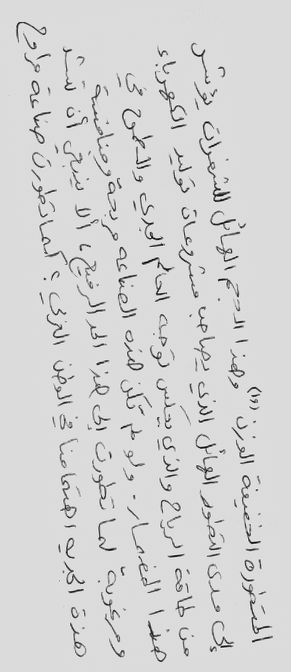 المتطورة الخفيفة الوزن (19) وهذا الحجم الهائل للشفرات يؤشر
إلى مدى التطور الهائل الذي يصاحب مشروعات توليد الكهرباء
من طاقة الرياح والذي يعكس توجه العالم الجدي والطموح في
هذا المضمار. ولو لم تكن هذه الصناعة مربحة ومنافسة
ومرغوبة لما تطورت إلى هذا الحد الرفيع، ألا ينبغي أن تثير
هذه التجربة اهتمامنا في الوطن العربي؟ كما تطورت صناعة مراوح